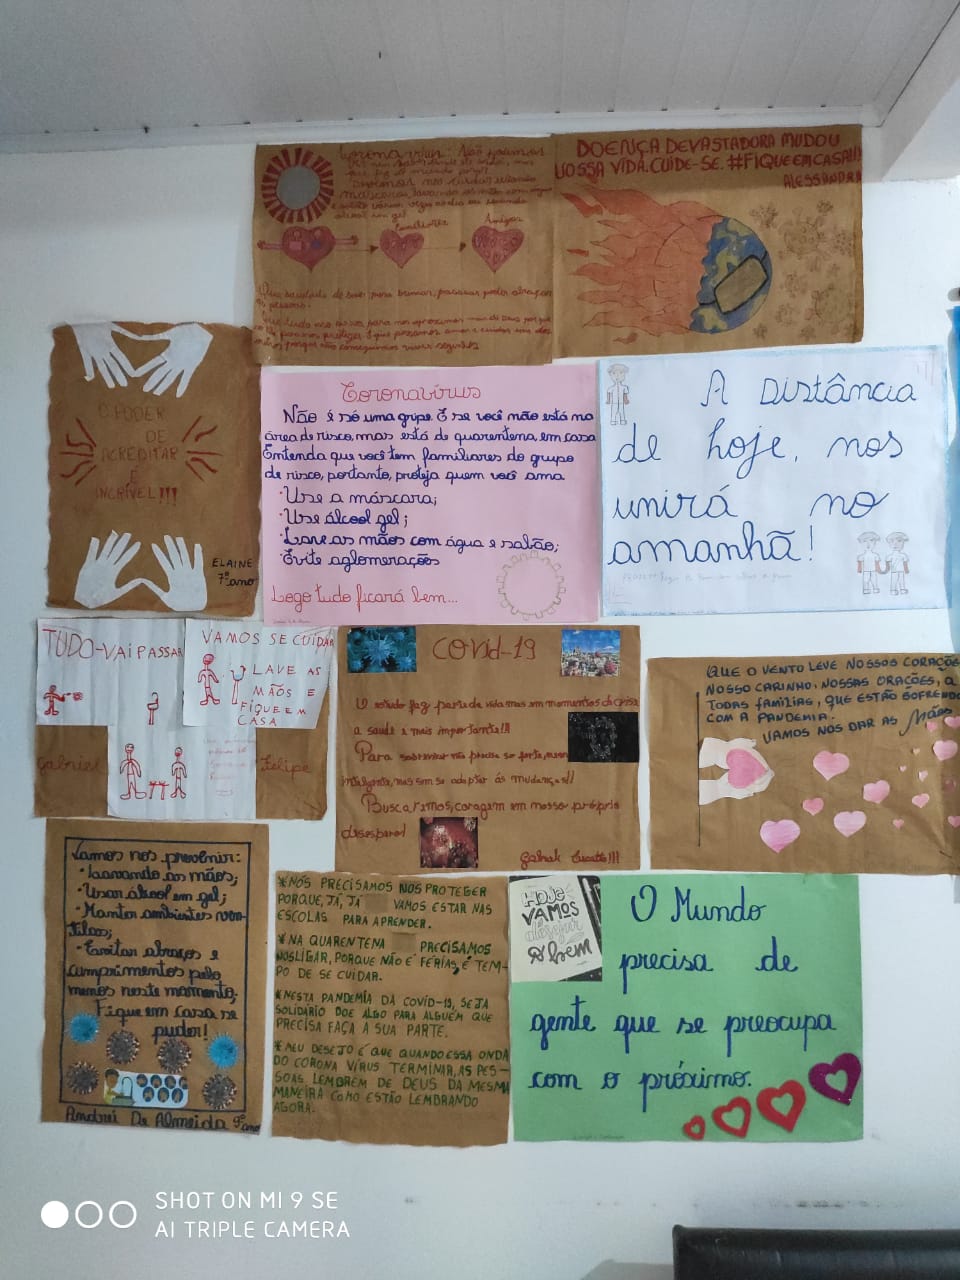 Coronavírus. Não podemos
mascaras, lavando as mãos com agua
e sabão várias vezes ao dia ou usando
alcool em gel
Familiares
Amigos
Que saudade de sair para brincar, passear, poder abraçar
as pessoas.
DOENÇA DEVASTADORA MUDOU
NOSSA VIDA. CUIDE-SE. #FIQUEEMCASA!!!
ALESSANDRA
O PODER
DE
ACREDITAR
É
INCRÍVEL!!!
ELAINE
7º ano
Coronavírus
Não é só uma gripe. E se você não está na
área de risco, mas está de quarentena, em casa
Entenda que você tem familiares do grupo
de risco, portanto, proteja quem você ama
·Use a máscara;
·Use álcool gel;
·Lave as mãos com água e sabão;
·Evite aglomerações
Logo tudo ficará bem...
A Distância
de hoje, nos
unirá no
amanhã!
TUDO-VAI PASSAR
VAMOS SE CUIDAR
LAVE AS
MÃOS E
FIQUE EM
CASA
Gabriel
Felipe
Covid-19
O estudo faz parte da vida mas em momentos de crise
a saude e mais importante!!!
Para sobreviver não precisa ser forte, nem
inteligente, mas sim se adaptar ás mudanças!!
Buscaremos, coragem em nosso próprio
desespero!
Gabriel Lucatto!!!
QUE O VENTO LEVE NOSSOS CORAÇÕES
NOSSO CARINHO, NOSSAS ORAÇÕES, A
TODAS FAMÍLIAS, QUE ESTÃO SOFRENDO
COM A PANDEMIA.
VAMOS NOS DAR AS Mãos
Vamos nos prevenir:
·Lavando as mãos;
·Usar álcool em gel;
·Manter ambientes ven-
tilas;
·Evitar abraços e
cumprimentos pelo
menos neste momento.
Fique em casa se
puder!
Andrei De Almeida 9º ano
*NÓS PRECISAMOS NOS PROTEGER
PORQUE, JÁ, JÁ VAMOS ESTAR NAS
ESCOLAS PARA APRENDER.
*NA QUARENTENA PRECISAMOS
NOS LIGAR, PORQUE NÃO É FÉRIAS, É TEM-
PO DE SE CUIDAR.
*NESTA PANDEMIA DA COVID-19, SEJA
SOLIDÁRIO DOE ALGO PARA ALGUÉM QUE
PRECISA FAÇA A SUA PARTE.
*MEU DESEJO É QUE QUANDO ESSA ONDA
DO CORONA VÍRUS TERMINAR, AS PES-
SOAS LEMBREM DE DEUS DA MESMA
MANEIRA COMO ESTÃO LEMBRANDO
AGORA.
HOJE
VAMOS
desejar
o bem
O Mundo
precisa de
gente que se preocupa
com o próximo.
SHOT ON MI 9 SE
AI TRIPLE CAMERA